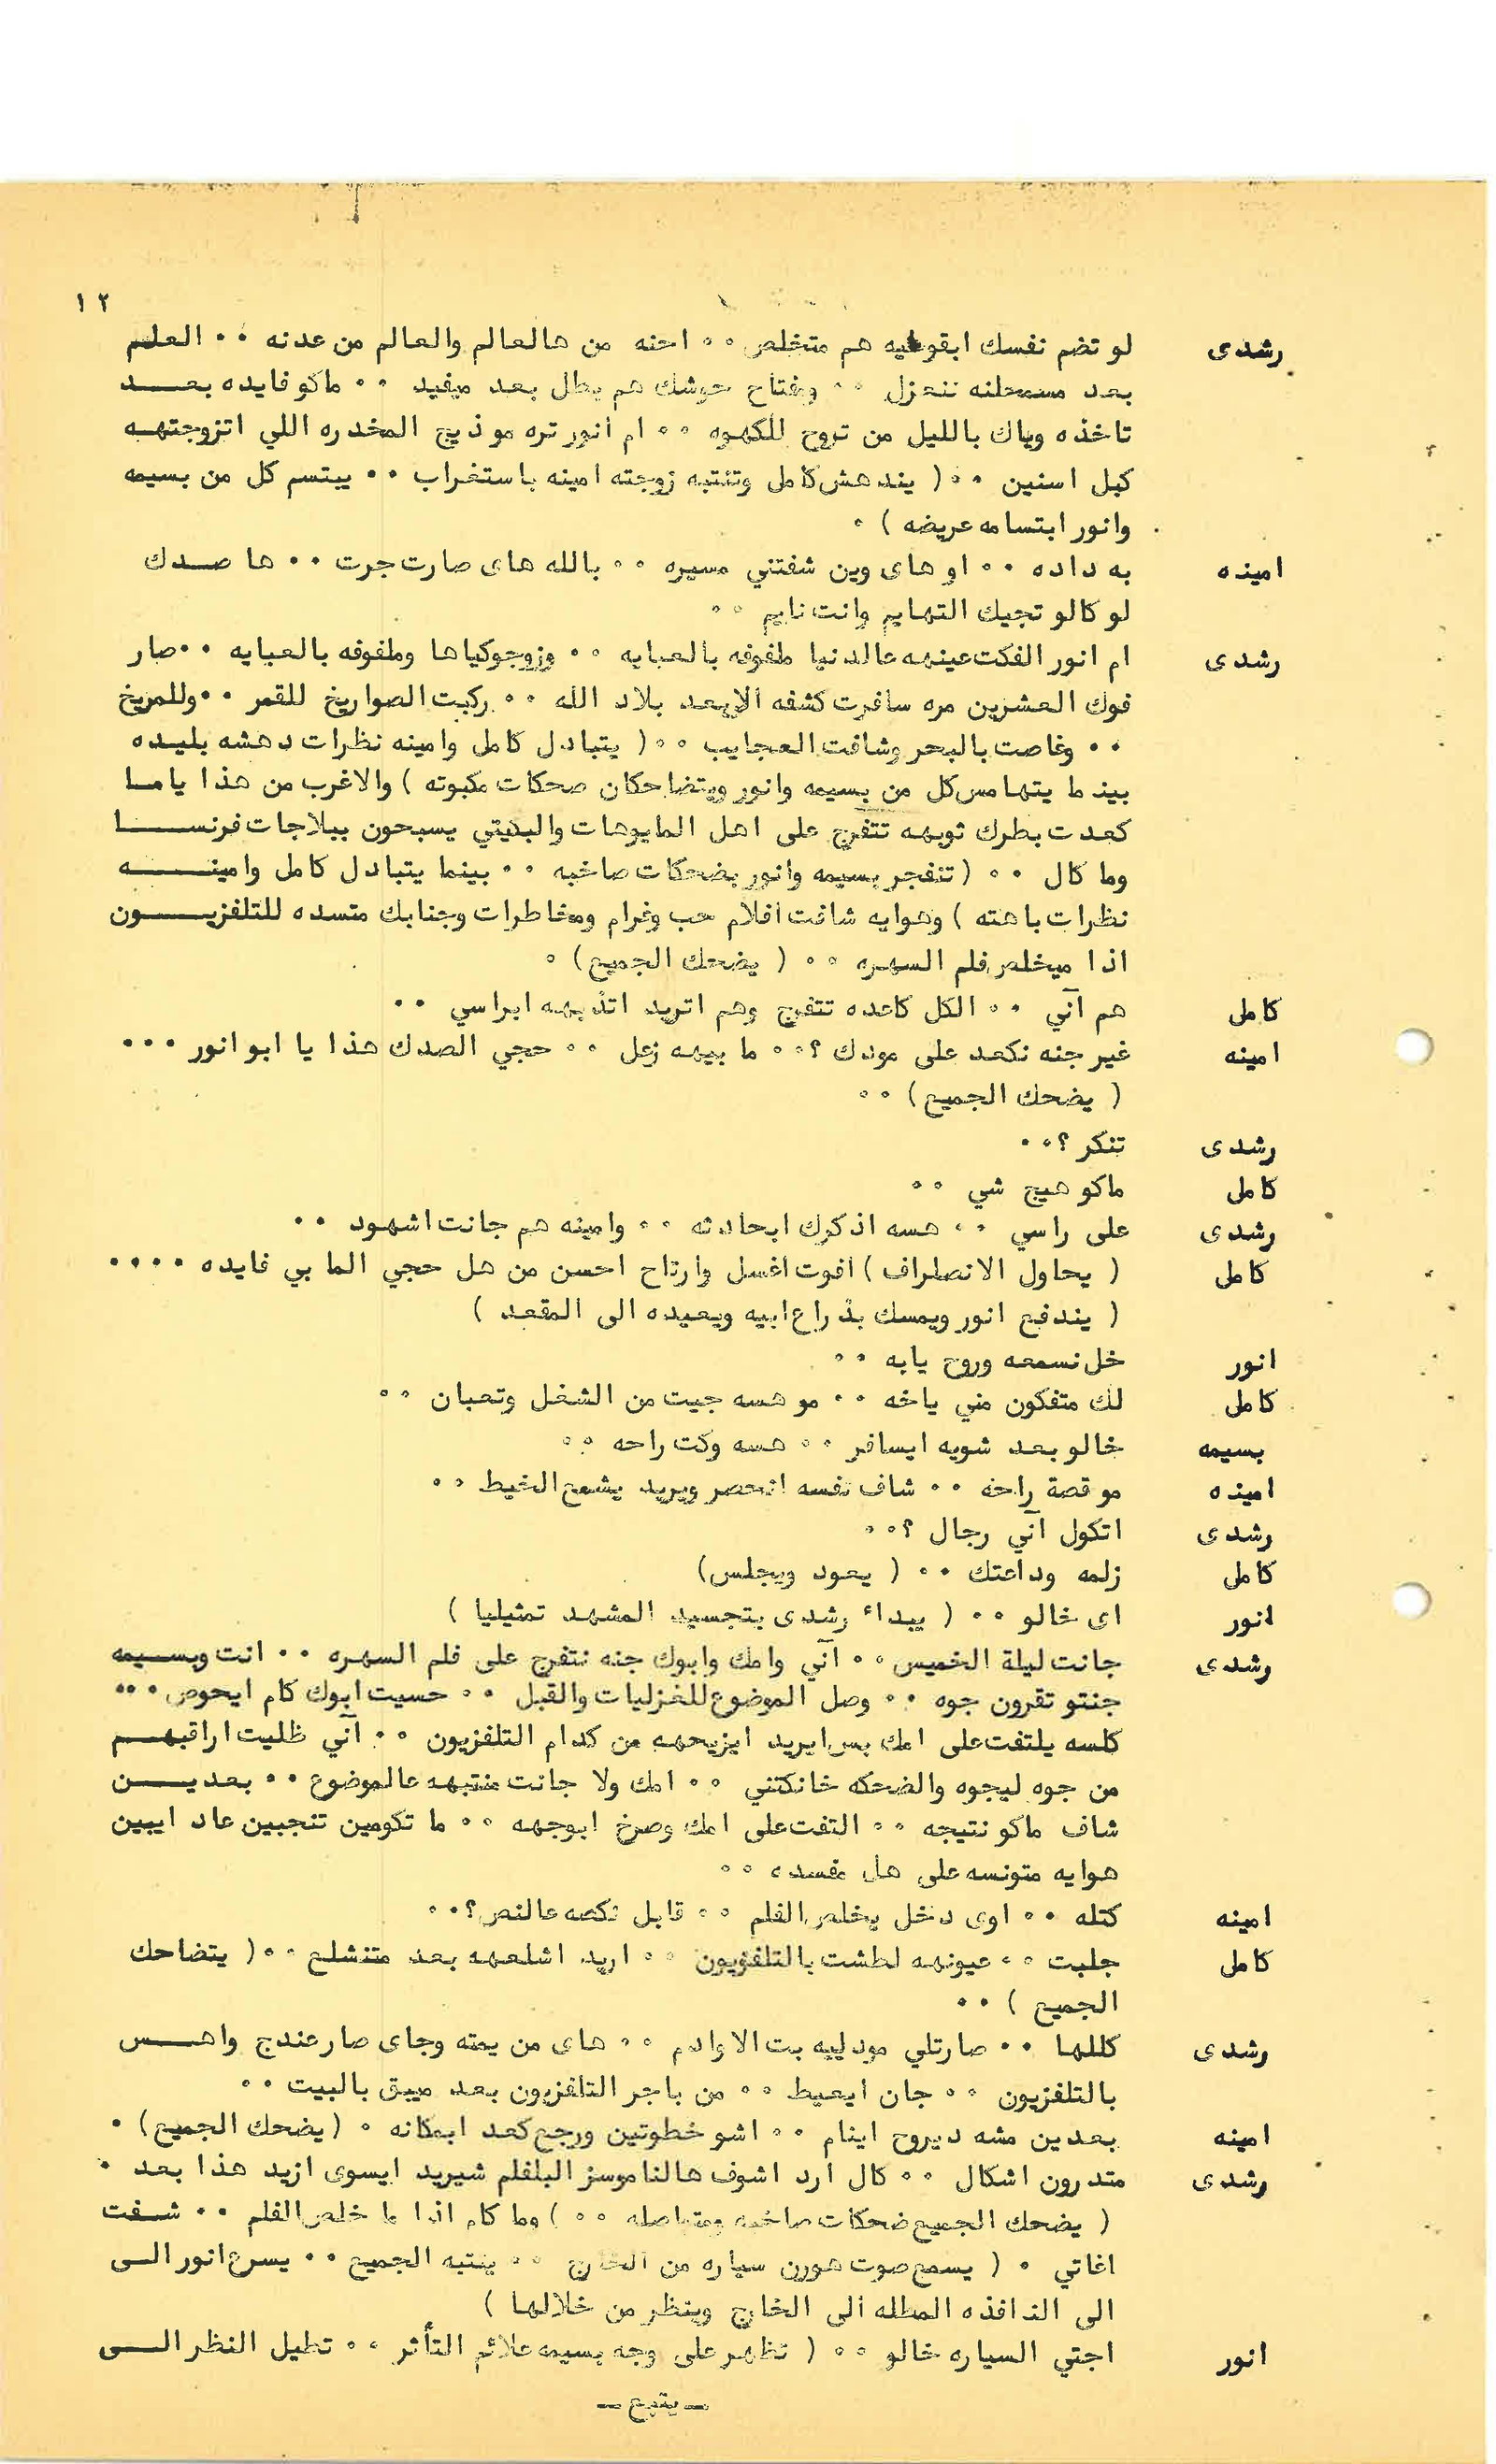 ١٢
رشدى لو تضم نفسك ابقوطيه هم متخلص ٠٠ احنه من هالعالم والعالم من عدنه ٠٠ العلم
بعد مسمحلنه ننعزل ٠٠ ومفتاح حوشك هم بطل بعد ميفيد ٠٠ ماكو فايده بعد
تاخذه وياك بالليل من تروح للكهوه ٠٠ ام انور تره مو ذيج المخدره اللي اتزوجتهه
كبل اسنين ٠٠ ( يندهش كامل وتنتبه زوجته امينه باستغراب ٠٠ يبتسم كل من بسيمه
وانور ابتسامه عريضه ) ٠
امينه يه داده ٠٠ او هاى وين شفتني مسيره ٠٠ بالله هاى صارت جرت ٠٠ ها صدك
لو كالو تجيك التهايم وانت نايم ٠٠
رشدى ام انور الفكت عينهه عالدنيا ملفوفه بالعبايه ٠٠ وزوجوكياها وملفوفه بالعبايه ٠٠ صار
فوك العشرين مره سافرت كشفه الابعد بلاد الله ٠٠ ركبت الصواريخ للقمر ٠٠ وللمريخ
٠٠ وغاصت بالبحر وشافت العجايب ٠٠ ( يتبادل كامل وامينه نظرات دهشه بليده
بينما يتهامس كل من بسيمه وانور ويتضاحكان ضحكات مكبوته ) والاغرب من هذا ياما
كعدت بطرك ثوبهه تتفرج على اهل المايوهات والبكيني يسبحون ببلاجات فرنسا
وما كال ٠٠ ( تنفجر بسيمه وانور بضحكات صاخبه ٠٠ بينما يتبادل كامل وامينه
نظرات باهته ) وهوايه شافت افلام حب وغرام ومخاطرات وجنابك متسده للتلفزيون
اذا ميخلص فلم السهره ٠٠ ( يضحك الجميع ) ٠
كامل هم آني ٠٠ الكل كاعده تتفرج وهم اتريد اتذبهه ابراسي ٠٠
امينه غير جنه نكعد على مودك ؟ ٠٠ ما بيهه زعل ٠٠ حجي الصدك هذا يا ابو انور ٠٠٠
( يضحك الجميع ) ٠٠
رشدى تنكر ؟ ٠٠
كامل ماكو هيج شي ٠٠
رشدى على راسي ٠٠ هسه اذكرك ابحادثه ٠٠ وامينه هم جانت اشهود ٠٠
كامل ( يحاول الانصراف ) افوت اغسل وارتاح احسن من هل حجي الما بي فايده ٠٠٠٠
( يندفع انور ويمسك بذراع ابيه ويعيده الى المقعد )
انور خل نسمعه وروح يابه ٠٠
كامل لك متفكون مني ياخه ٠٠ مو هسه جيت من الشغل وتعبان ٠٠
بسيمه خالو بعد شويه ايسافر ٠٠ هسه وكت راحه ٠٠
امينه مو قصة راحه ٠٠ شاف نفسه انحصر ويريد يشمع الخيط ٠٠
رشدى اتكول آني رجال ؟ ٠٠
كامل زلمه وداعتك ٠٠ ( يعود ويجلس )
انور اى خالو ٠٠ ( يبداء رشدى بتجسيد المشهد تمثيليا )
رشدى جانت ليلة الخميس ٠٠ آني وامك وابوك جنه نتفرج على فلم السهره ٠٠ انت وبسيمه
جنتو تقرون جوه ٠٠ وصل الموضوع للغزليات والقبل ٠٠ حسيت ابوك كام ايحوص ٠٠٠
كلسه يلتفت على امك بس ايريد ايزيحهه من كدام التلفزيون ٠٠ آني ظليت اراقبهم
من جوه ليجوه والضحكه خانكتني ٠٠ امك ولا جانت منتبهه عالموضوع ٠٠ بعدين
شاف ماكو نتيجه ٠٠ التفت على امك وصرخ ابوجهه ٠٠ ما تكومين تنجبين عاد ايبين
هوايه متونسه على هل مفسده ٠٠
امينه كتله ٠٠ اوى دخل يخلص الفلم ٠٠ قابل نكصه عالنص ؟ ٠٠
كامل جلبت ٠٠ عيونهه لطشت بالتلفزيون ٠٠ اريد اشلعهه بعد متنشلع ٠٠ ( يتضاحك
الجميع ) ٠٠
رشدى كللها ٠٠ صارتلي مودليه بت الاوادم ٠٠ هاى من يمته وجاى صار عندج واهس
بالتلفزيون ٠٠ جان ايعيط ٠٠ من باجر التلفزيون بعد ميبق بالبيت ٠٠
امينه بعدين مشه ديروح اينام ٠٠ اشو خطوتين ورجع كعد ابمكانه ٠ ( يضحك الجميع ) ٠
رشدى متدرون اشكال ٠٠ كال ارد اشوف هالناموسز البلفلم شيريد ايسوى ازيد هذا بعد ٠
( يضحك الجميع ضحكات صاخبه ومتواصله ٠٠ ) وما كام اذا ما خلص الفلم ٠٠ شفت
اغاتي ٠ ( يسمع صوت هورن سياره من الخارج ٠٠ ينتبه الجميع ٠٠ يسرع انور الى
الى النافذه المطله الى الخارج وينظر من خلالها )
انور اجتي السياره خالو ٠٠ ( تظهر على وجه بسيمه علائم التأثر ٠٠ تطيل النظر الى
ـ يتبع ـ